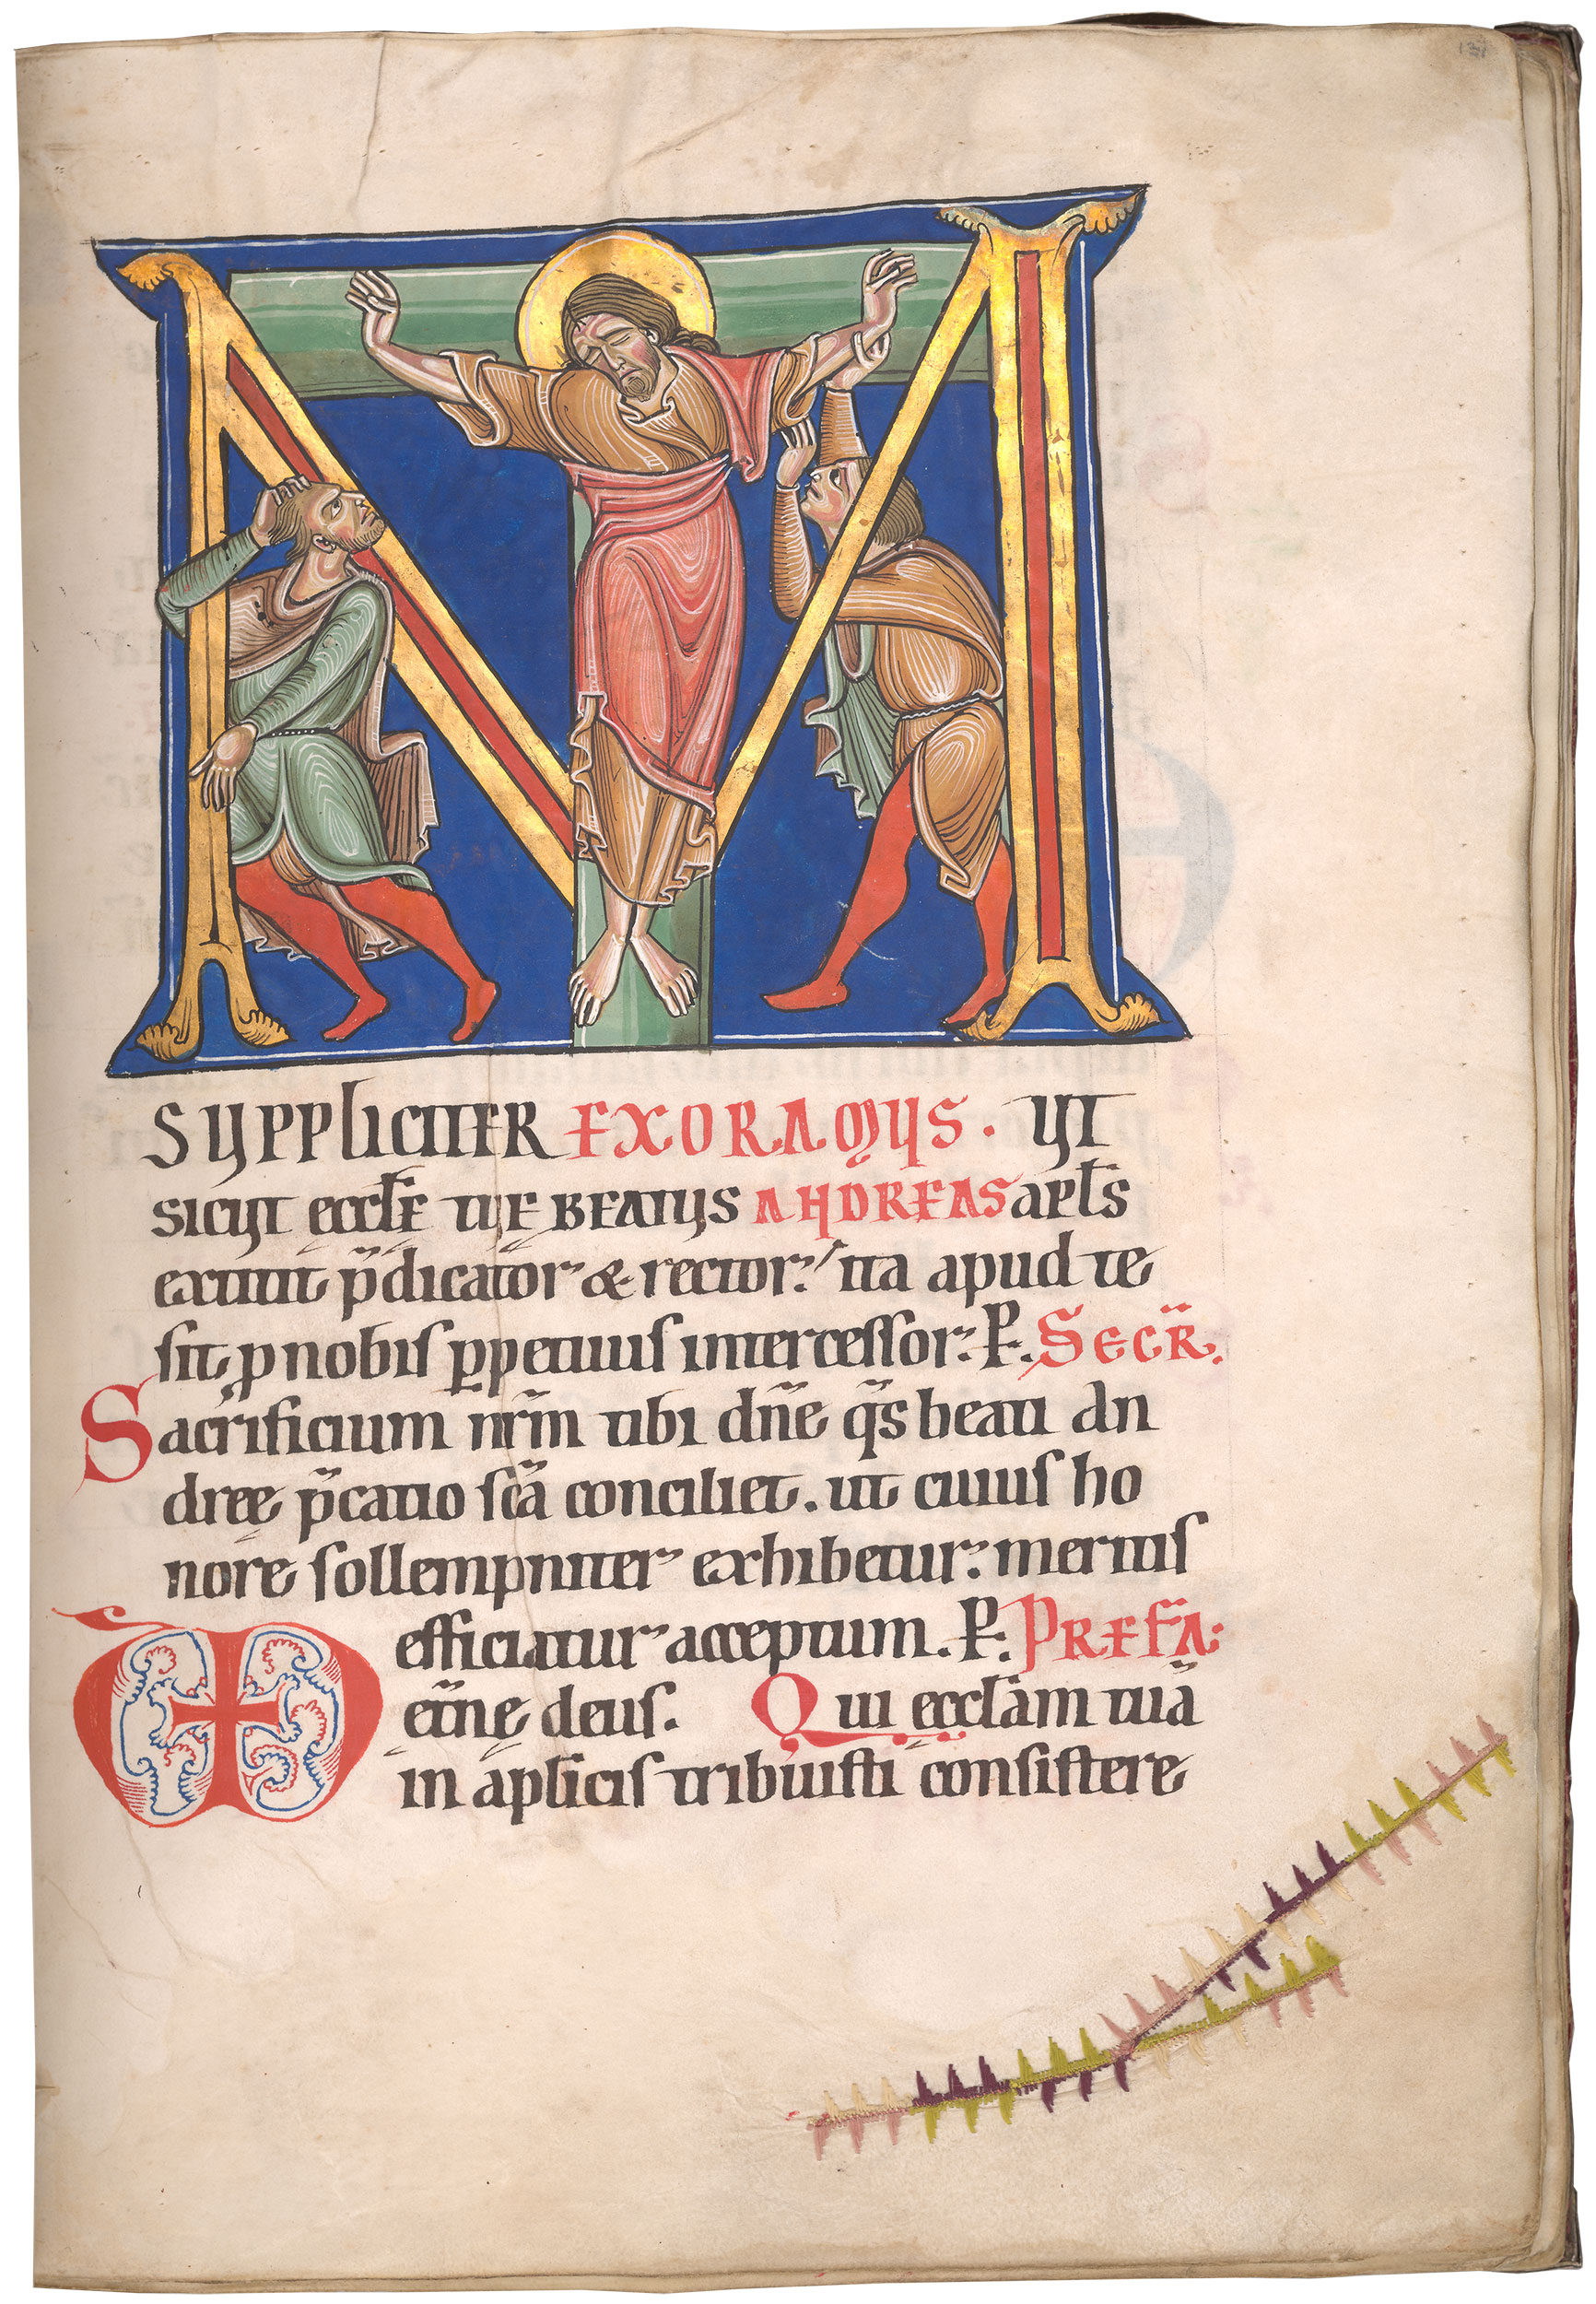 M
SUPPLICITER EXORAMUS. UT
SICUT ęccłę TUE BEATUS ANDREAS apłs
extitit p̄dicator & rector: ita apud te
sit ꝓ nobis ꝑpetuus intercessor: P. SECR̄.
Sacrificium nr̄m tibi dn̄e q̄s beati an
dreę p̄catio sc̄a conciliet. ut cuius ho
nore sollempniter exhibetur: meritis
efficiatur acceptum. P. PREFA:
et̄nę deus. Qui ęccłam tuā
in apłicis tribuisti consistere